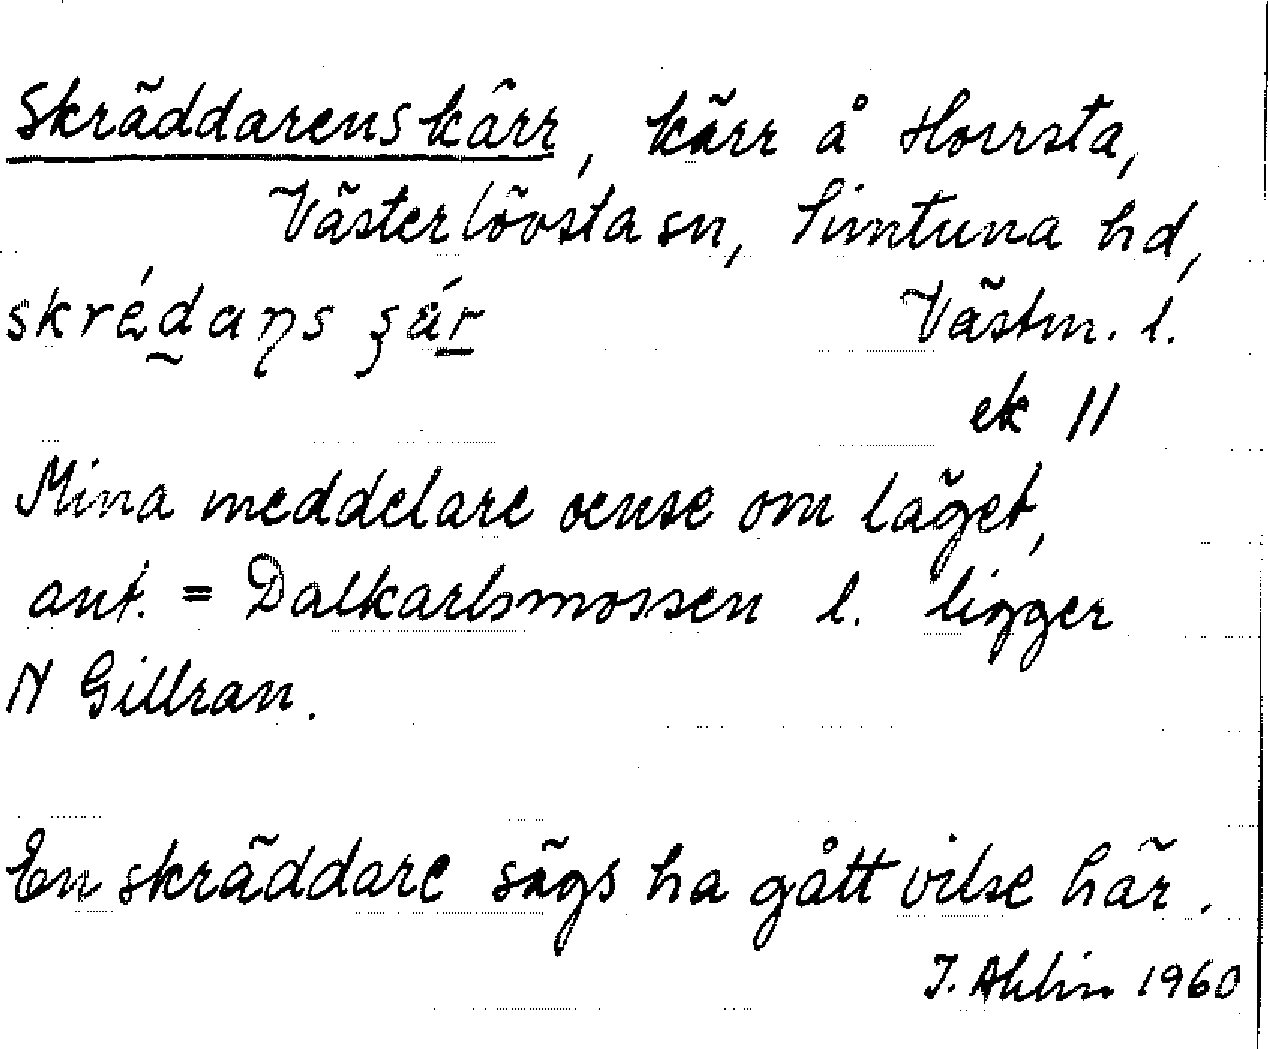 Skräddarenskärr, kärr å Horrsta,
Västerlövsta sn, Simtuna hd,
skrédaŋs şä́r Västm. l.
ek 11
Mina meddelare oense om läget,
ant. = Dalkarlsmossen l. ligger
N Gillran.
En skräddare sägs ha gått vilse här.
J. Ahlin 1960